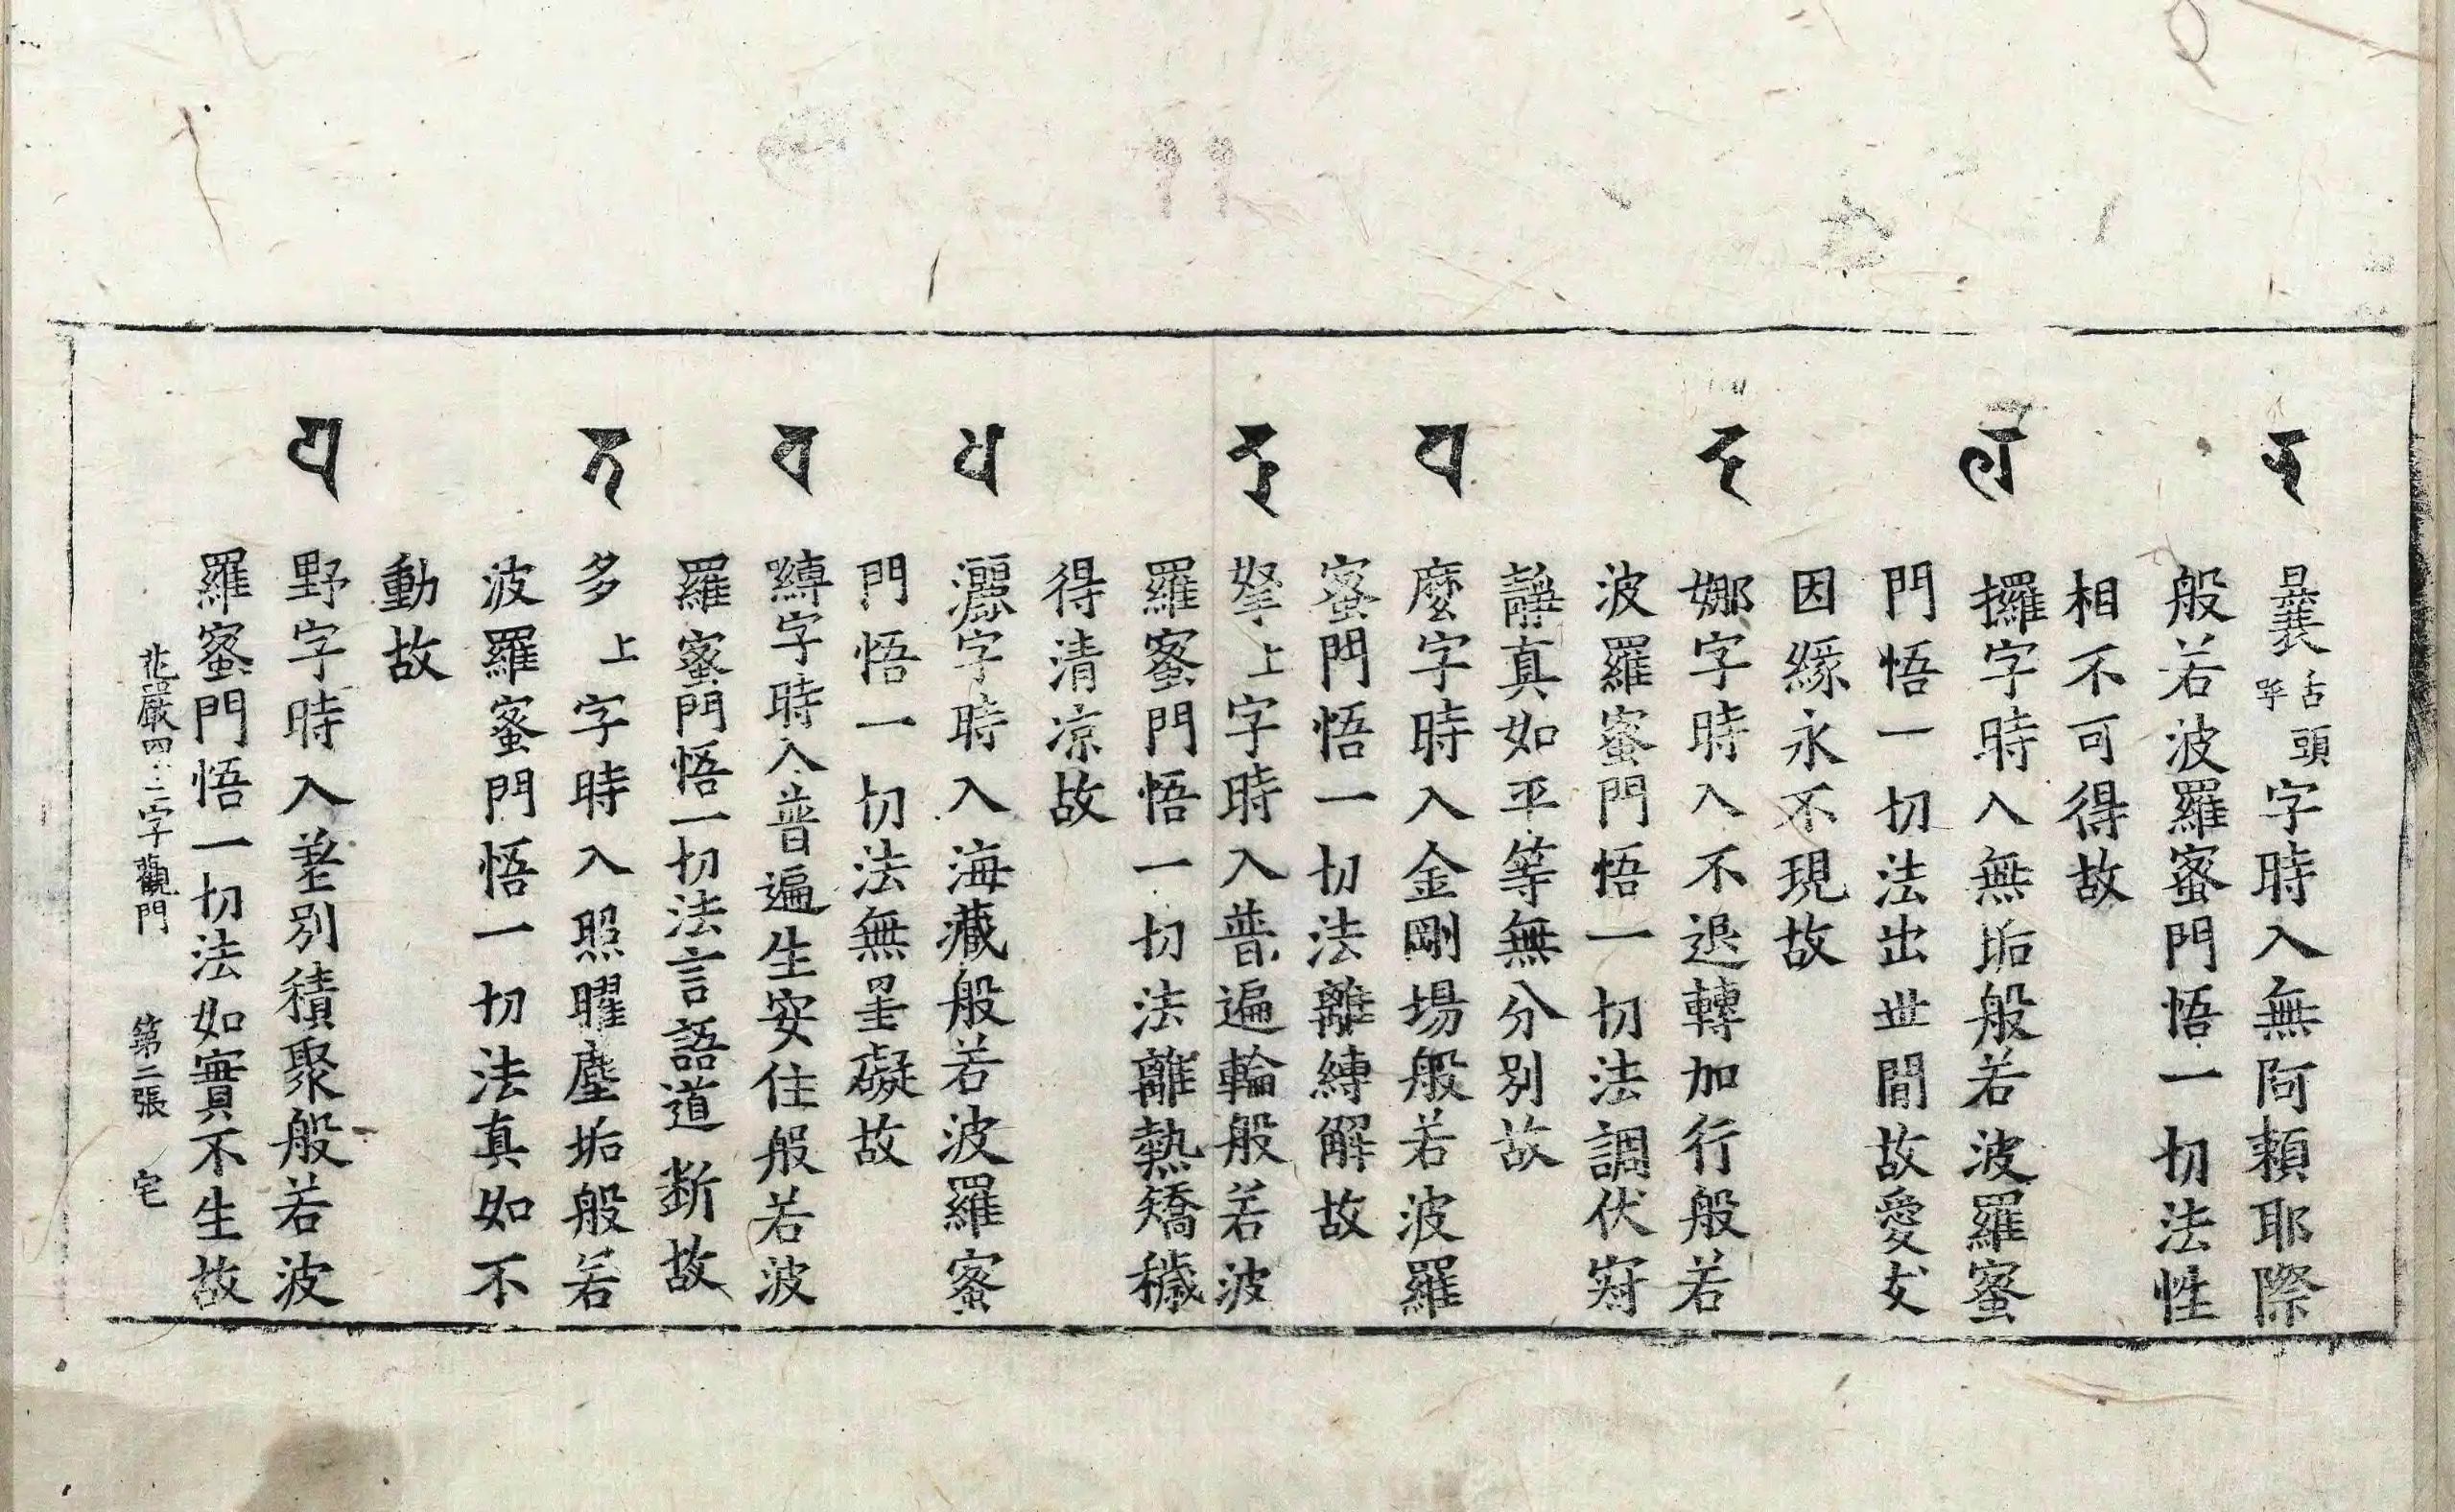 𑖗 曩舌頭呼字時入無阿頼耶際
般若波羅蜜門悟一切法性
相不可得故
𑖩 攞字時入無垢般若波羅蜜
門悟一切法出丗間故愛支
因緣永不現故
𑖟 娜字時入不退轉加行般若
波羅蜜門悟一切法調伏寂
静真如平等無分別故
𑖤 麼字時入金剛場般若波羅
蜜門悟一切法離縛解故
𑖚 拏上字時入普遍輪般若波
羅蜜門悟一切法離熱矯穢
得清凉故
𑖬 灑字時入海藏般若波羅蜜
門悟一切法無罣礙故
𑖪 嚩字時入普遍生安住般若波
羅蜜門悟一切法言語道断故
𑖝 多上字時入照曜塵垢般若
波羅蜜門悟一切法真如不
動故
𑖧 野字時入差別積聚般若波
羅蜜門悟一切法如實不生故
花嚴四十二字觀門 第二張 宅